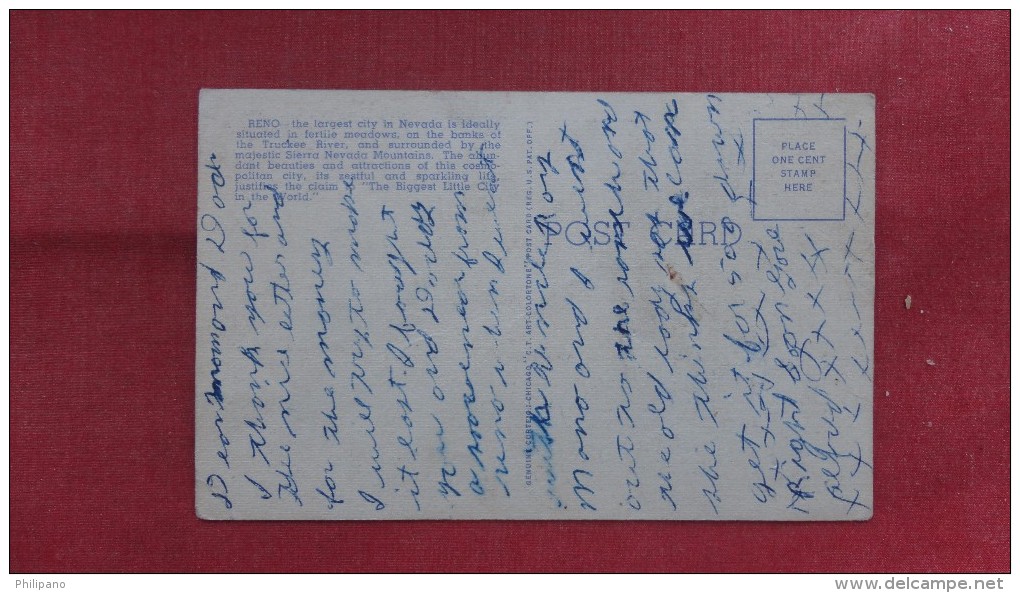 RENO—the largest city in Nevada is ideally
situated in fertile meadows, on the banks of
the Truckee River, and surrounded by the
majestic Sierra Nevada Mountains. The abun-
dant beauties and attractions of this cosmo-
politan city, its zestful and sparkling life
justifies the claim to "The Biggest Little City
in the World."
GENUINE CURTEICH-CHICAGO "C.T. ART-COLORTONE" POST CARD (REG. U.S. PAT. OFF.)
POST CARD
PLACE
ONE CENT
STAMP
HERE
Dear momond Dod
I thank you for
the nice letter and
for the money
I will try to make
it last I bought
you and Daddy
a souvenear from
reno when
Uncle Roy
Mono and aunt
out to the
old lady that
she thinks we can
get it for 500 down
Right
xxxx
Philipano
www.delcampe.net